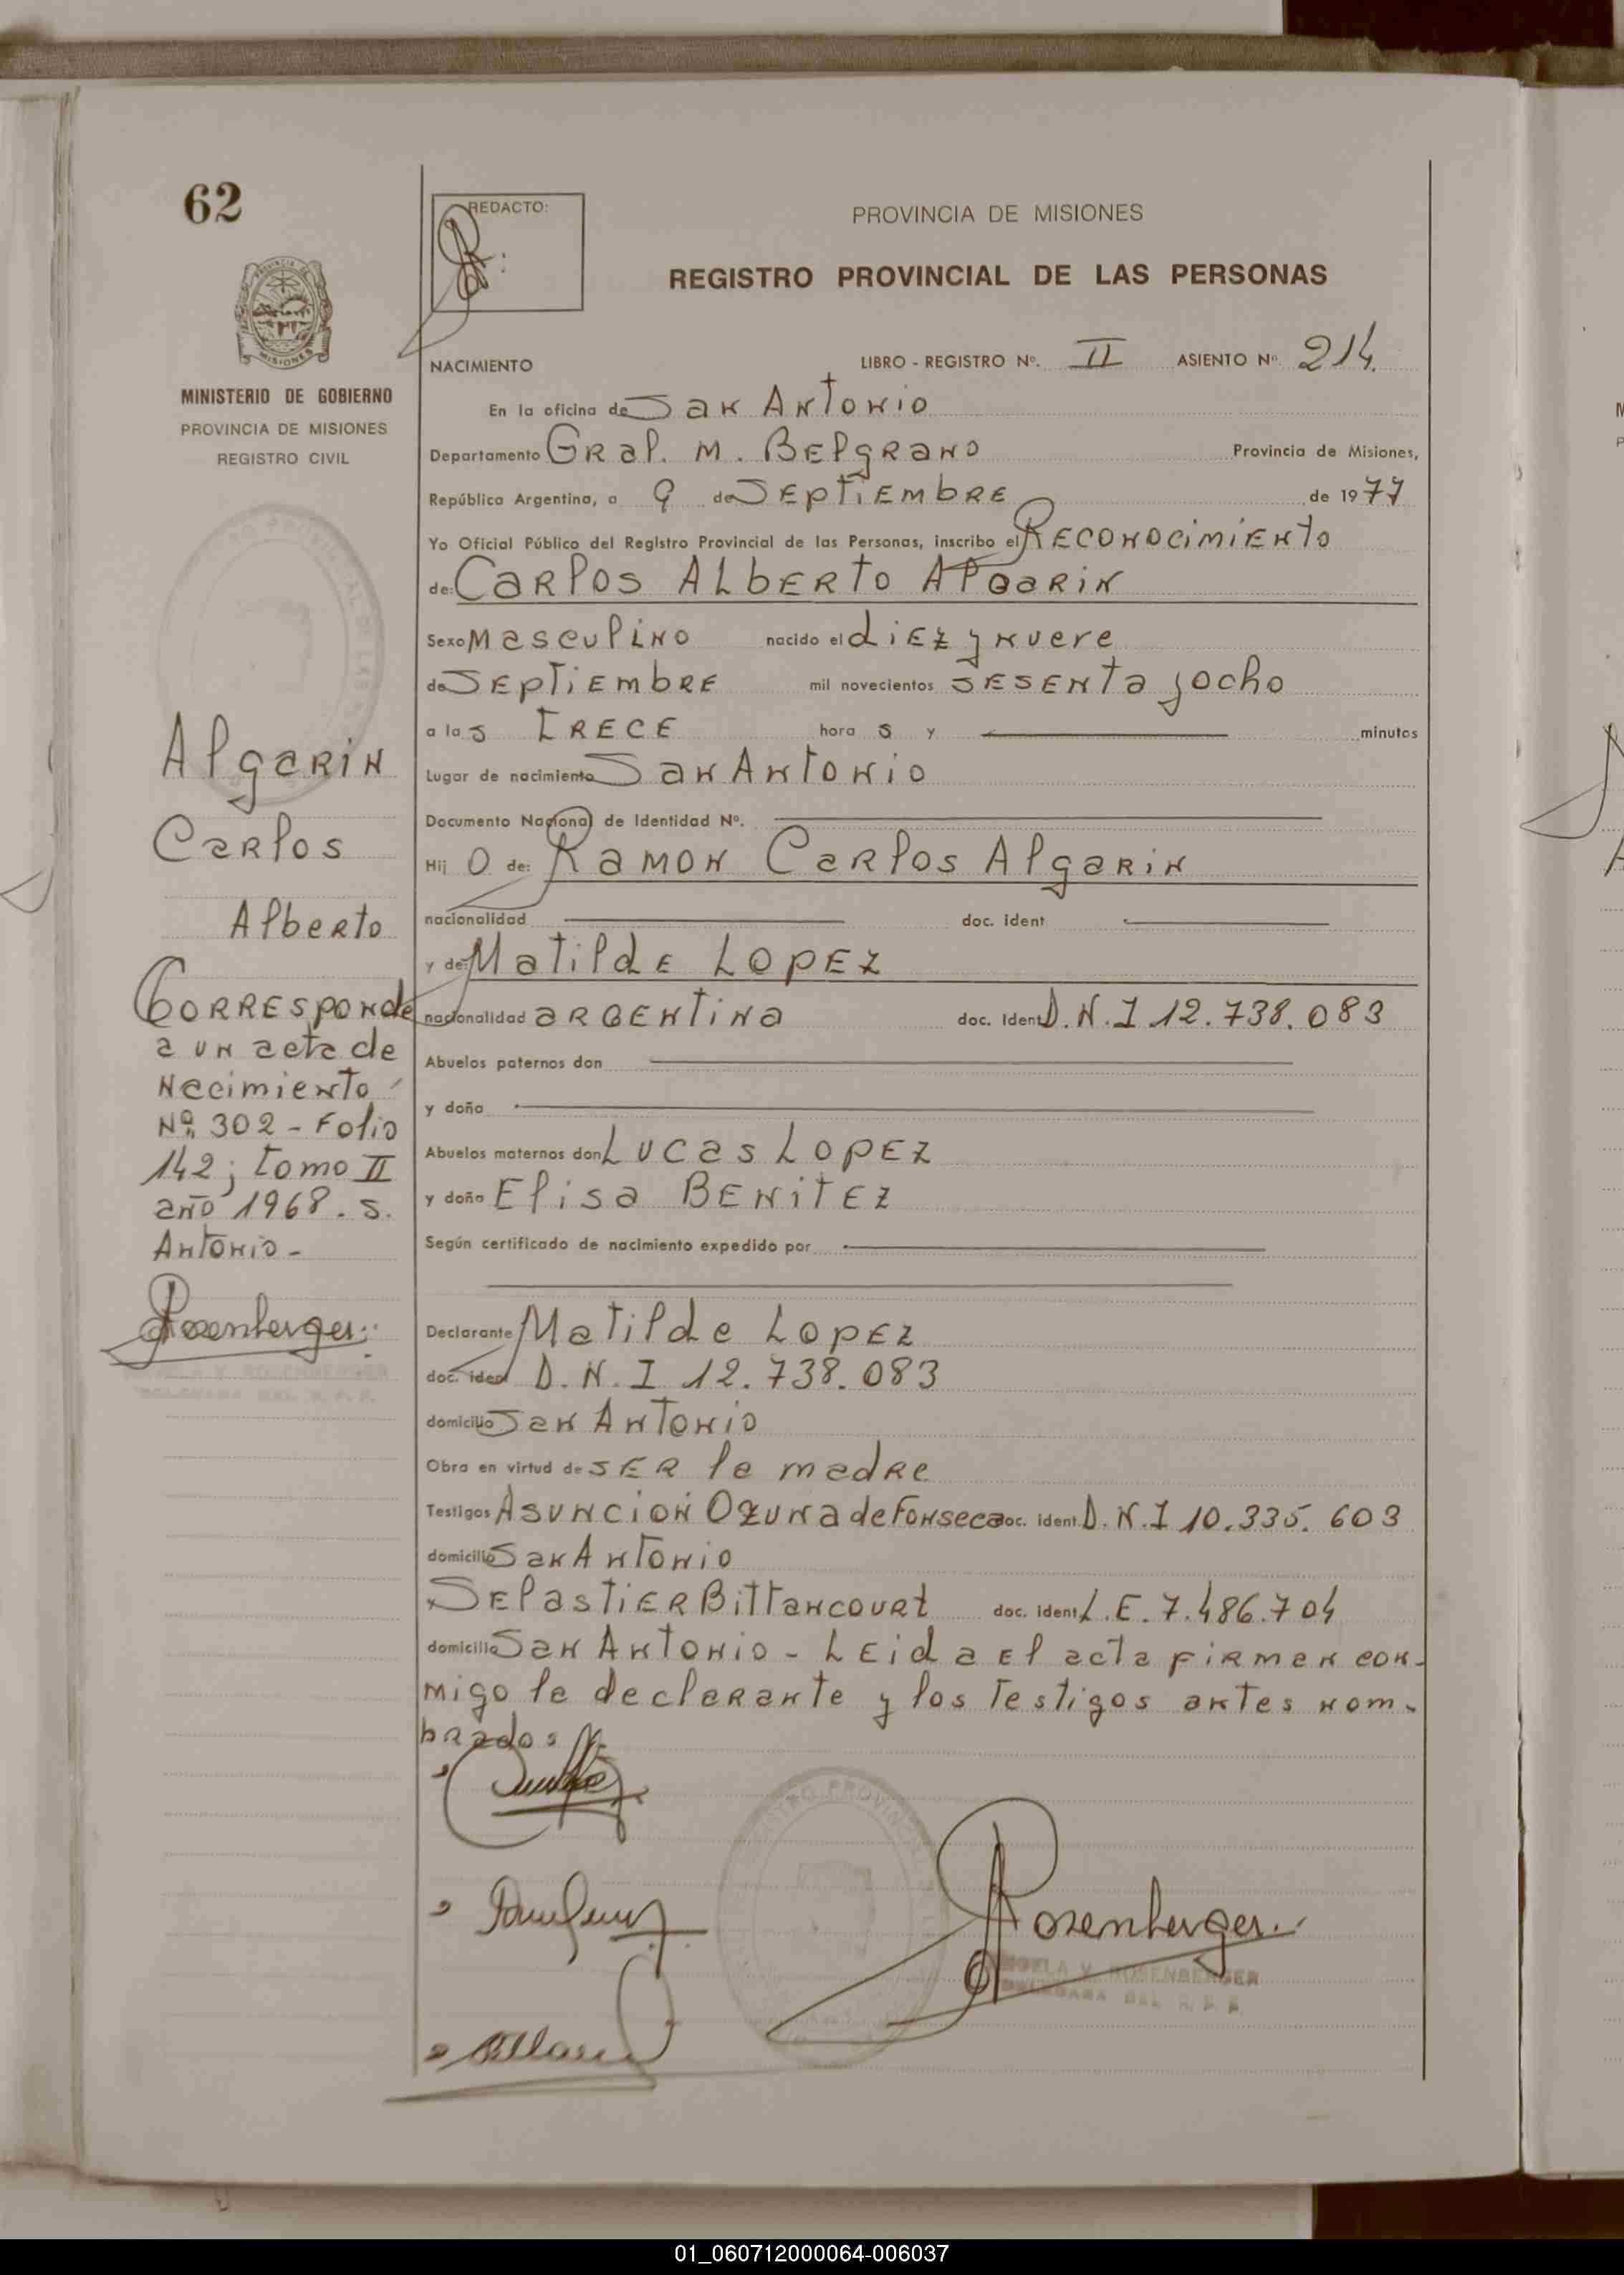 62
REDACTO:
PROVINCIA DE MISIONES
REGISTRO PROVINCIAL DE LAS PERSONAS
MISIONES
MINISTERIO DE GOBIERNO
PROVINCIA DE MISIONES
REGISTRO CIVIL
NACIMIENTO LIBRO - REGISTRO Nº. II ASIENTO Nº. 214
En la oficina de San Antonio
Departamento Gral. M. Belgrano Provincia de Misiones,
República Argentina, a 9 de Septiembre de 1977
Yo Oficial Público del Registro Provincial de las Personas, inscribo el Reconocimiento
de: Carlos Alberto Algarin
Sexo Masculino nacido el diez y nueve
de Septiembre mil novecientos sesenta y ocho
a las trece hora s y minutos
Lugar de nacimiento San Antonio
Documento Nacional de Identidad Nº.
Hij o de: Ramon Carlos Algarin
nacionalidad doc. ident
y de: Matilde Lopez
nacionalidad argentina doc. ident D.N.I 12.738.083
Abuelos paternos don
y doña
Abuelos maternos don Lucas Lopez
y doña Elisa Benitez
Según certificado de nacimiento expedido por
Declarante Matilde Lopez
doc. ident D.N.I 12.738.083
domicilio San Antonio
Obra en virtud de ser la madre
Testigos Asuncion Ozuna de Fonseca doc. ident. D.N.I 10.335.603
domicilio San Antonio
Selastier Bittancourt doc. ident L.E. 7.486.704
domicilio San Antonio - Leid a el acta firman con-
migo la declarante y los testigos antes nom-
brados
Algarin
Carlos
Alberto
Corresponde
a un acta de
Nacimiento
Nº 302 - Folio
142; tomo II
año 1968. S.
Antonio -
Rosenberger
Rosenberger
ANGELA V. ROSENBERGER
DELEGADA DEL R. P. P.
01_060712000064-006037